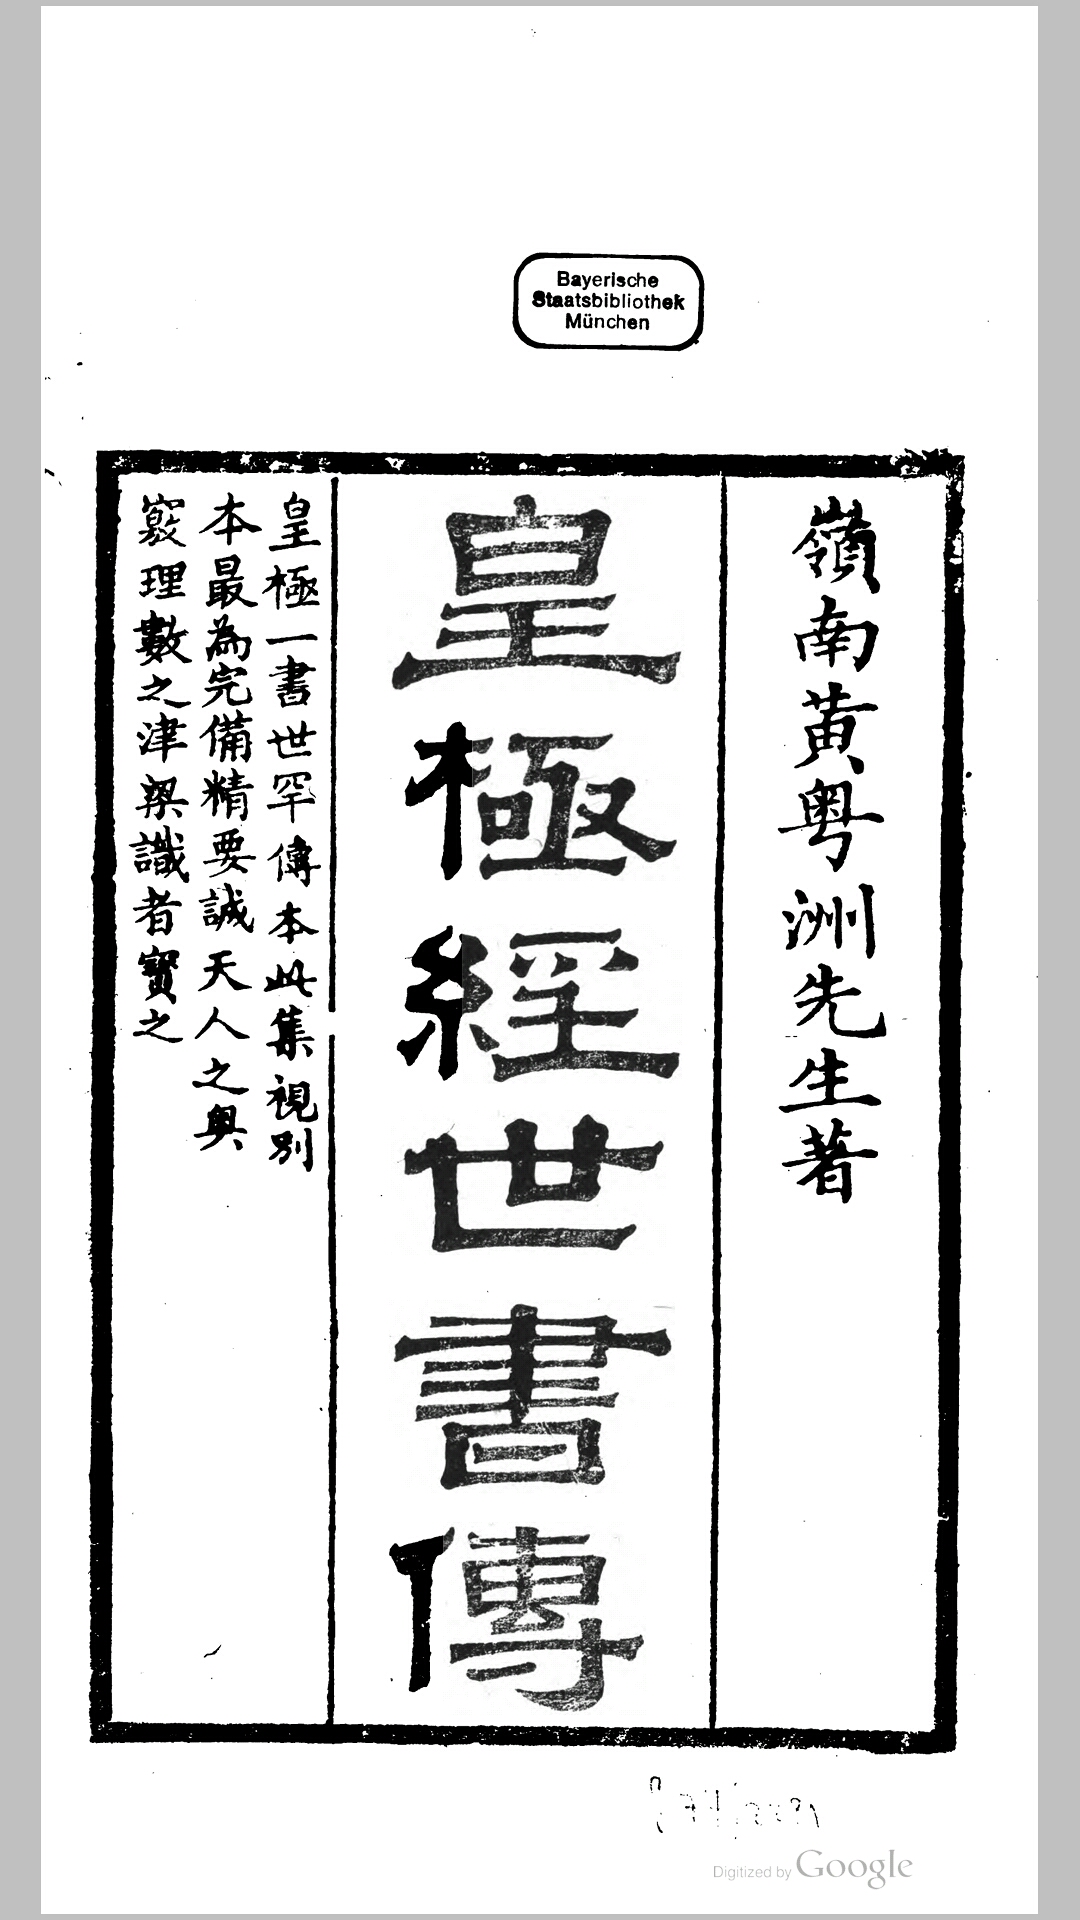 Bayerische
Staatsbibliothek
München
嶺南黄粤洲先生著
皇極經世書傳
皇極一書世罕傳本此集視別
本最為完備精要誠天人之奥
窾理數之津梁識者寳之
Digitized by Google